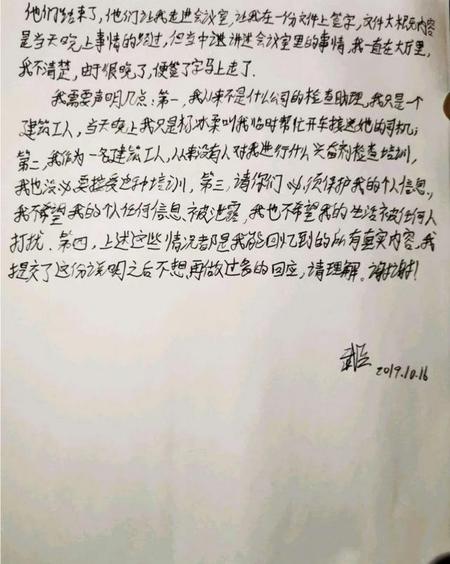 他们结束了，他们让我走进会议室，让我在一份文件上签字，文件大概内容
是当天晚上事情的经过，但当中谁讲进会议室里的事情，我一直在大厅里，
我不清楚，由于很晚了，便签了字马上走了.
我需要声明几点：第一，我从来不是什么公司的检查助理，我只是一个
建筑工人，当天晚上我只是杨冰柔叫我临时帮忙开车接送她的司机；
第二，我作为一名建筑工人，从来没有人对我进行什么兴奋剂检查培训，
我也没必要接受这种培训，第三，请你们必须保护我的个人信息，
我不希望我的个人任何信息被泄露，我也不希望我的生活被任何人
打扰。第四，上述这些情况都是我能回忆到的所有真实内容，我
提交了这份说明之后不想再做过多的回应，请理解。谢谢！
2019.10.16